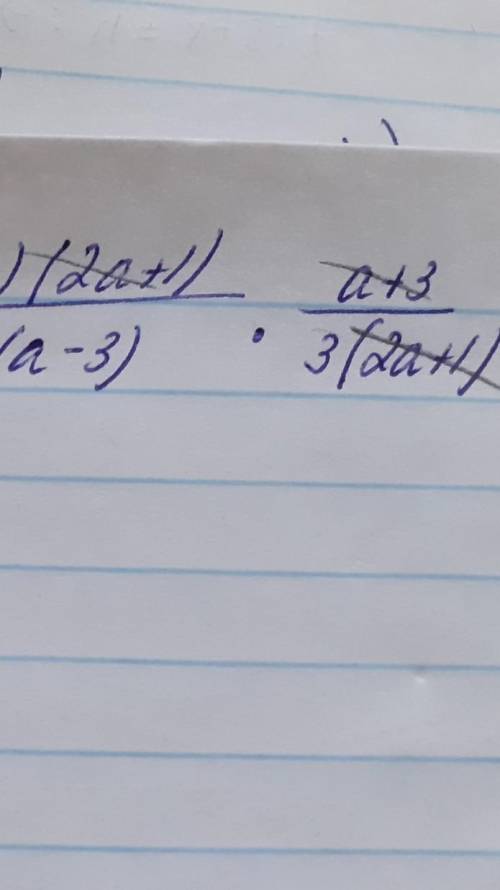 )(2a+1) / (a-3) · a+3 / 3(2a+1)